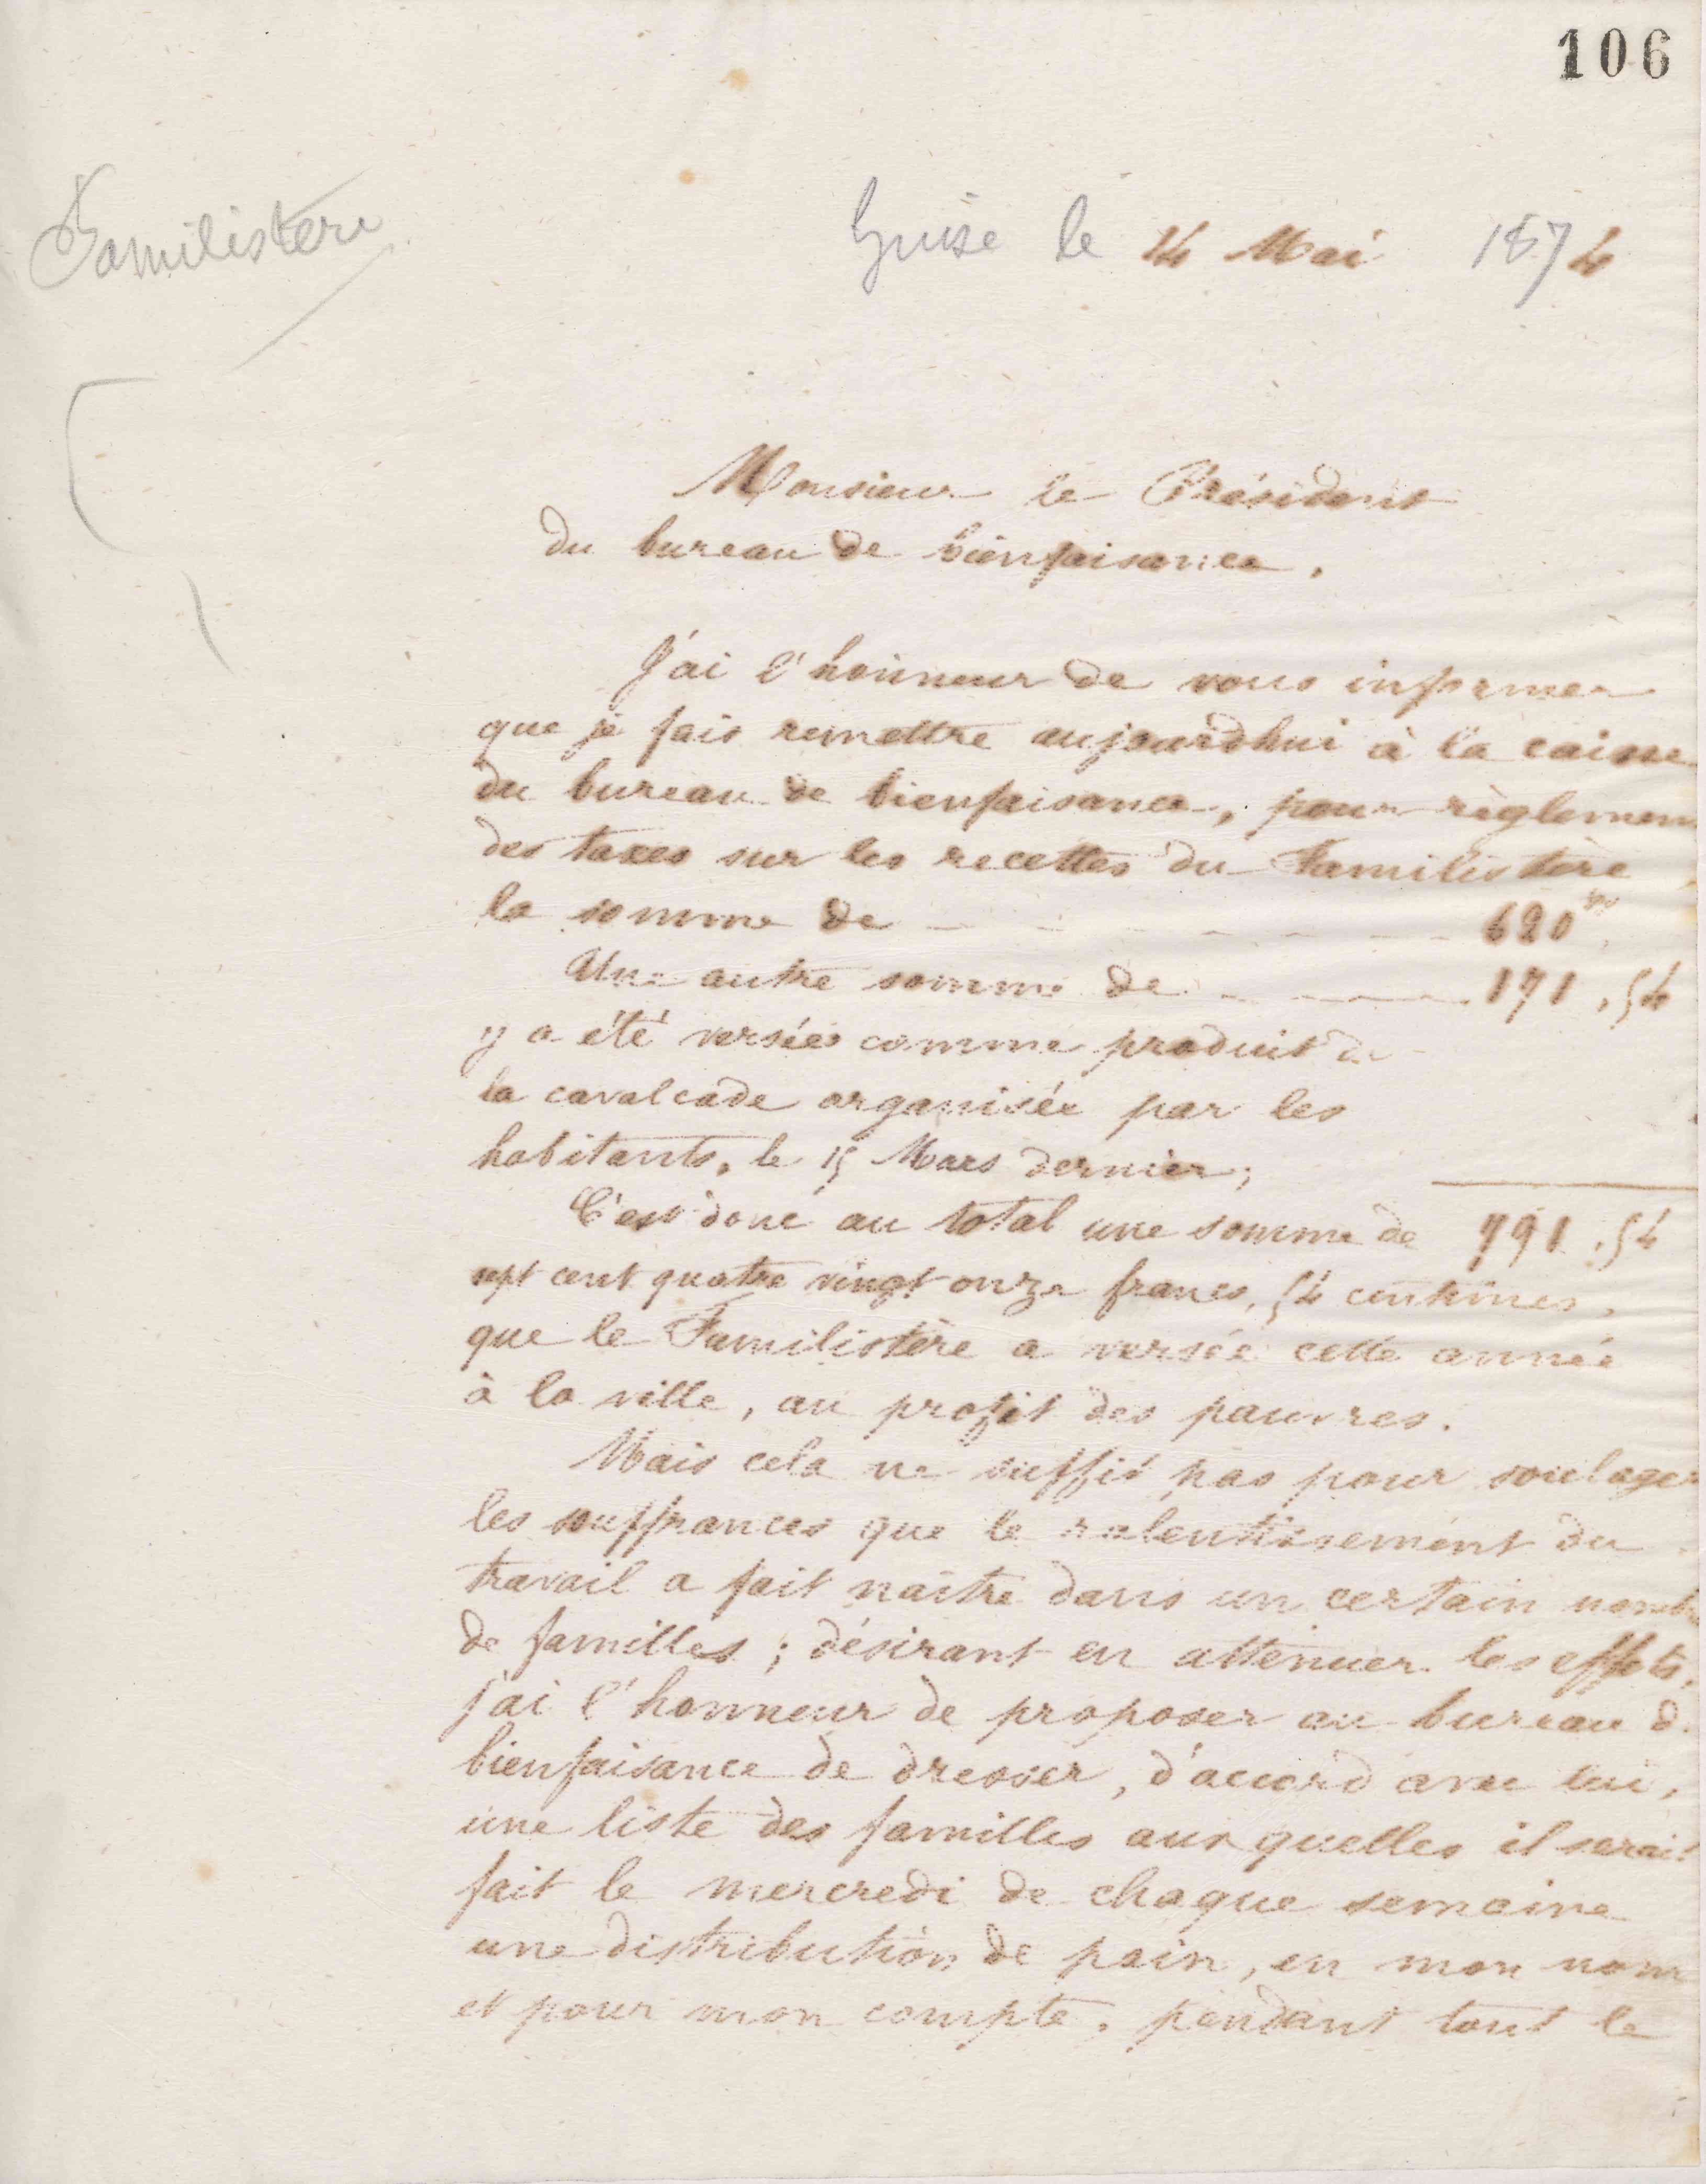 106
Familistère
Guise le 14 Mai 1874
Monsieur le Président
du bureau de bienfaisance,
J'ai l'honneur de vous informer
que je fais remettre aujourd'hui à la caisse
du bureau de bienfaisance, pour règlement
des taxes sur les recettes du Familistère
la somme de 620 fr
Une autre somme de 171,54
y a été versée comme produit de
la cavalcade organisée par les
habitants, le 15 Mars dernier;
C'est donc au total une somme de 791,54
sept cent quatre vingt onze francs, 54 centimes,
que le Familistère a versée cette année
à la ville, au profit des pauvres.
Mais cela ne suffit pas pour soulager
les souffrances que le ralentissement du
travail a fait naître dans un certain nombre
de familles; désirant en atténuer les effets,
j'ai l'honneur de proposer au bureau de
bienfaisance de dresser, d'accord avec lui,
une liste des familles aux quelles il serait
fait le mercredi de chaque semaine
une distribution de pain, en mon nom
et pour mon compte, pendant tout le